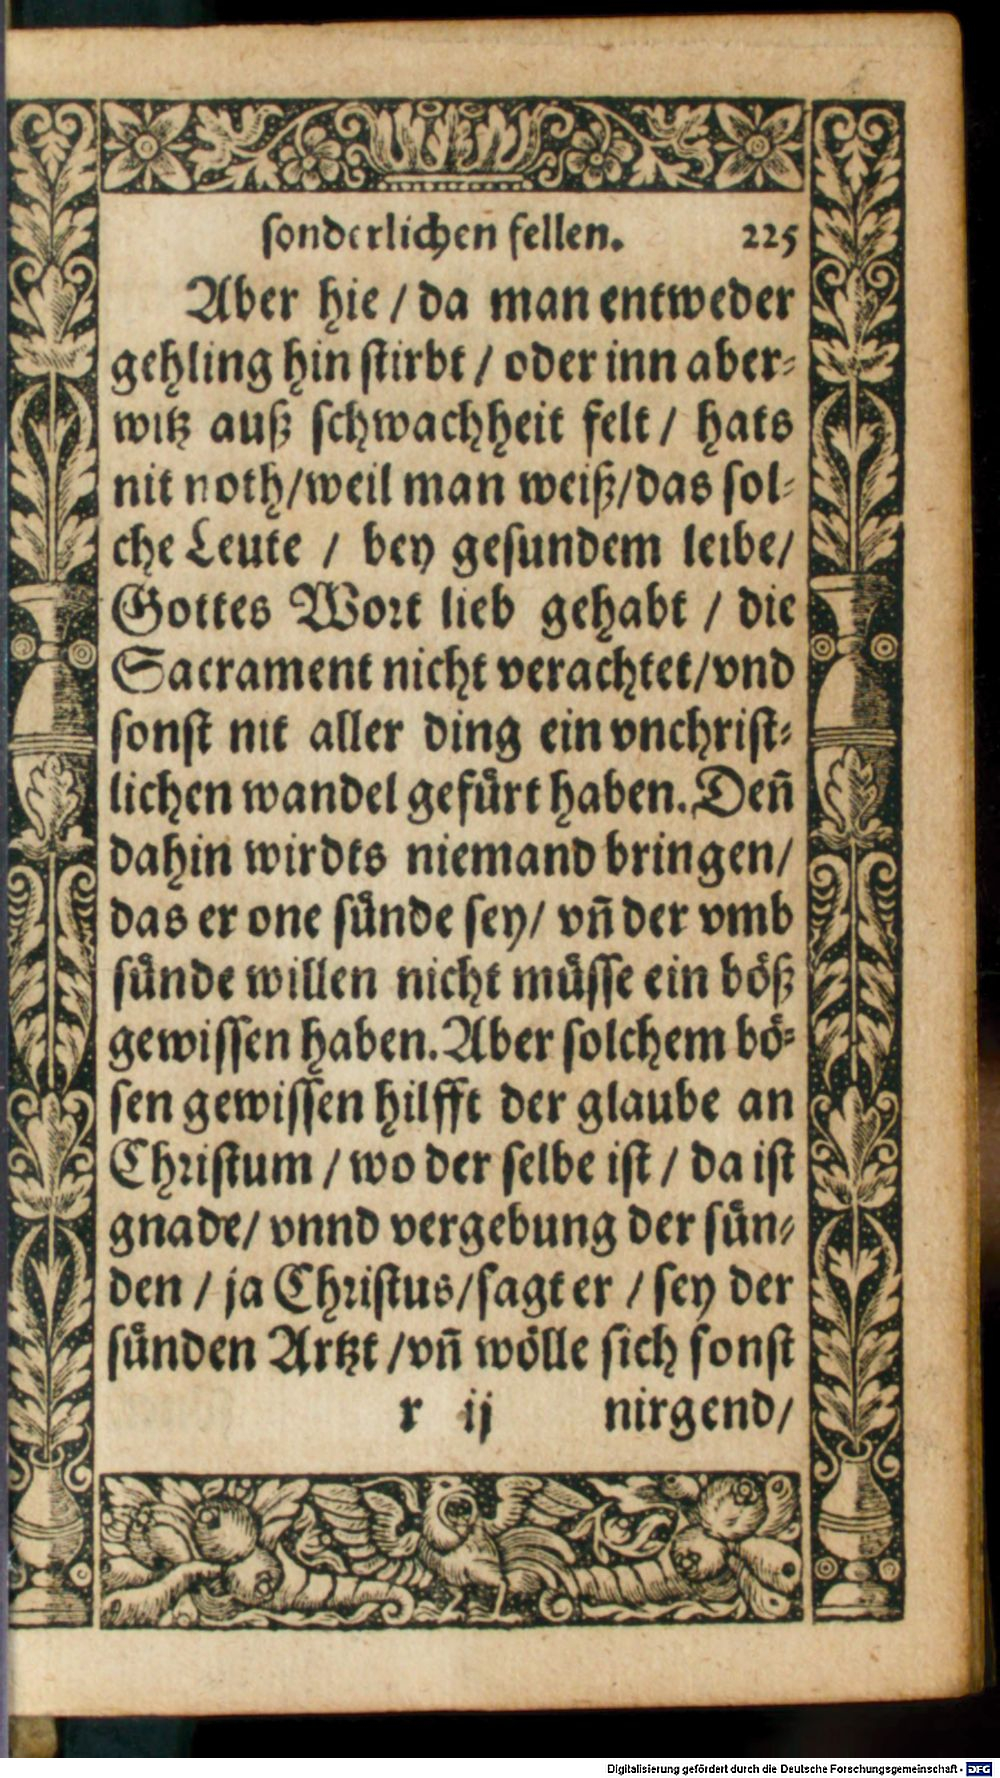 sonderlichen fellen. 225
Aber hie / da man entweder
gehling hin stirbt / oder inn aber-
witz auß schwachheit felt / hats
nit noth/weil man weiß/das sol-
che Leute / bey gesundem leibe/
Gottes Wort lieb gehabt / die
Sacrament nicht verachtet/vnd
sonst nit aller ding ein vnchrist-
lichen wandel gefuͤrt haben. Deñ
dahin wirdts niemand bringen/
das er one suͤnde sey/ vñ der vmb
suͤnde willen nicht muͤsse ein boͤß
gewissen haben. Aber solchem boͤ-
sen gewissen hilfft der glaube an
Christum / wo der selbe ist / da ist
gnade/ vnnd vergebung der suͤn-
den / ja Christus/sagt er / sey der
suͤnden Artzt /vñ woͤlle sich sonst
r ij nirgend/
Digitalisierung gefördert durch die Deutsche Forschungsgemeinschaft - DFG